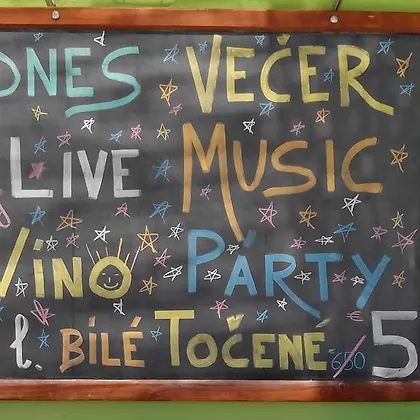 DNES VEČER
LIVE MUSIC
VÍNO PÁRTY
l. BÍLÉ TOČENÉ 680 5